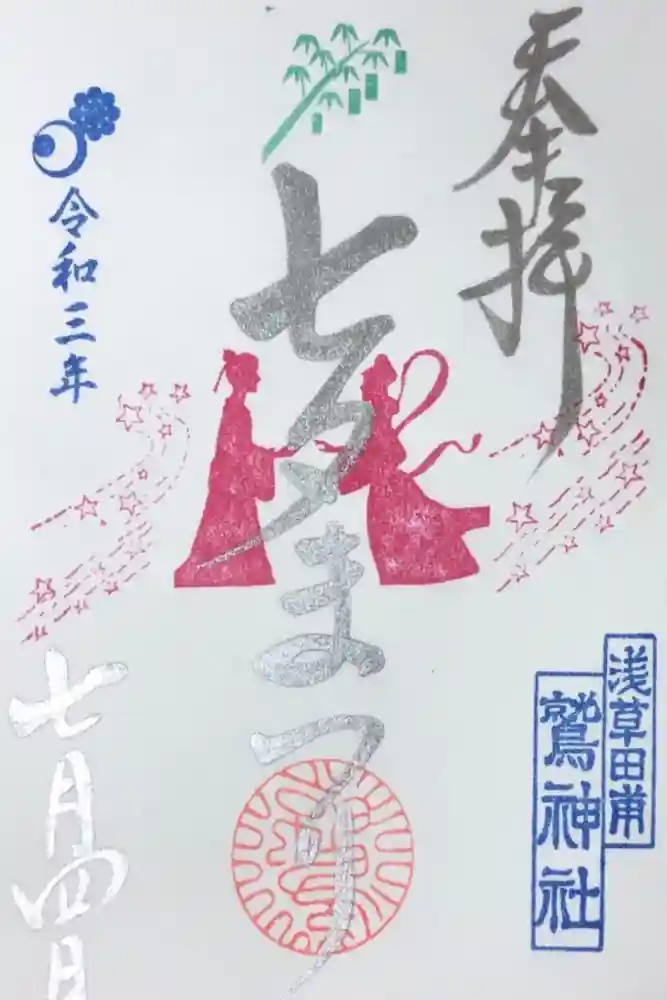 奉拝
浅草田甫
鷲神社
七夕まつり
令和三年
七月四日